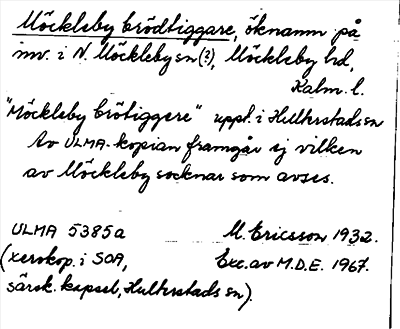 Möckleby brödtiggare, öknamn på
inv. i N. Möckleby sn (?), Möckleby hd,
Kalm. l.
"Möckleby brötiggere" uppt. i Hulterstads sn
Av ULMA-kopian framgår ej vilken
av Möckleby socknar som avses.
ULMA 5385a M. Ericsson 1932.
(xerokop. i SOA, Exc. av M.D.E. 1967.
särsk. kapsel, Hulterstads sn).